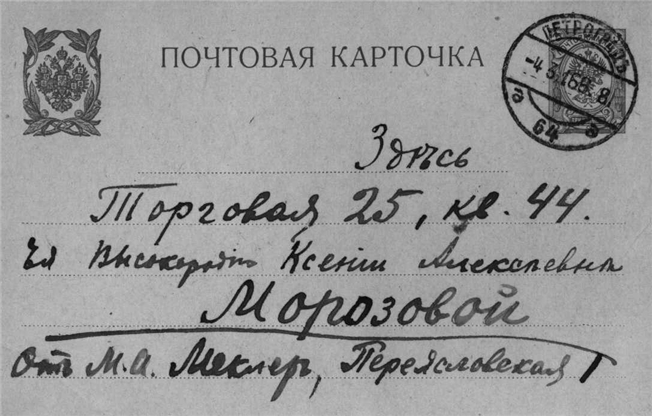 ПОЧТОВАЯ КАРТОЧКА
ПЕТРОГРАДЪ
-4.5.15 8
а 64 а
Здѣсь
Торговая 25, кв. 44.
Ея Высокородію Ксеніи Алексѣевнѣ
Морозовой
Отъ М.А. Меклеръ, Переясловская 1